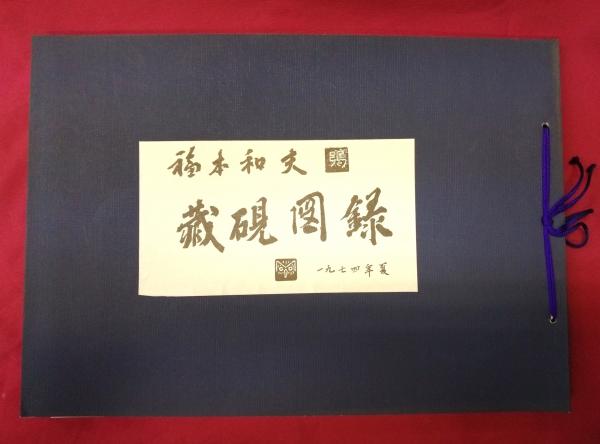 福本和夫
藏硯図録
一九七四年夏